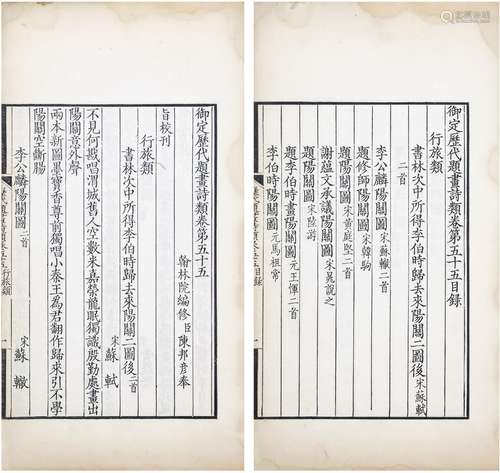 御定歷代題畫詩類卷第五十五目錄
行旅類
書林次中所得李伯時歸去來陽關二圖後 宋蘇軾
二首
李公麟陽關圖 宋蘇轍二首
題修師陽關圖 宋韓駒
題陽關圖 宋黃庭堅二首
謝蘊文承議陽關圖 宋晁說之
題陽關圖 宋陸游
題李伯時畫陽關圖 元王惲二首
李伯時陽關圖 元馬祖常
御定歷代題畫詩類卷第五十五
翰林院編修臣陳邦彥奉
旨校刊
行旅類
書林次中所得李伯時歸去來陽關二圖後 二首
宋蘇軾
不見何戡唱渭城舊人空數米嘉榮龍眠獨識殷勤處畫出
陽關意外聲
兩本新圖墨寶香尊前獨唱小秦王為君翻作歸來引不學
陽關空斷腸
李公麟陽關圖 二首
宋蘇轍